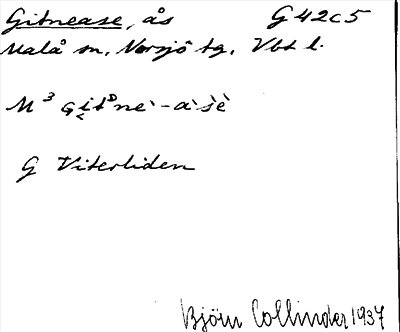 Gitnease, ås G42c5
Malå sn, Norsjö tg, Vbt l.
M³ Gi̬tᴰnè-àsè
G Viterliden
Björn Collinder 1937